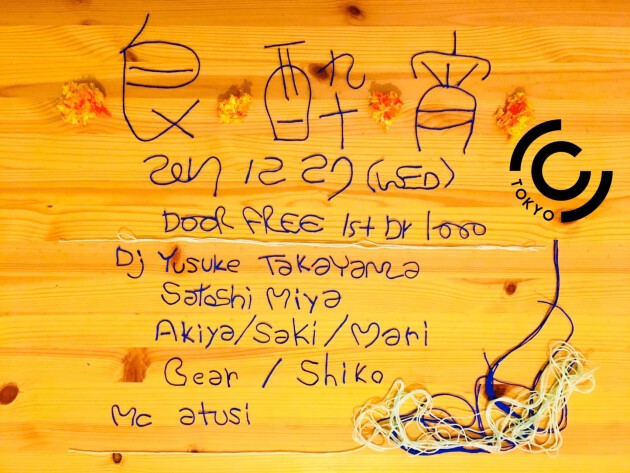 良 酔 宵
2017 12 27 (WED)
DOOR FREE 1st Dr 1000
TOKYO
Dj Yusuke TaKaYama
Satoshi Miya
Akiya/Saki/Mari
Bear / Shiko
Mc atusi